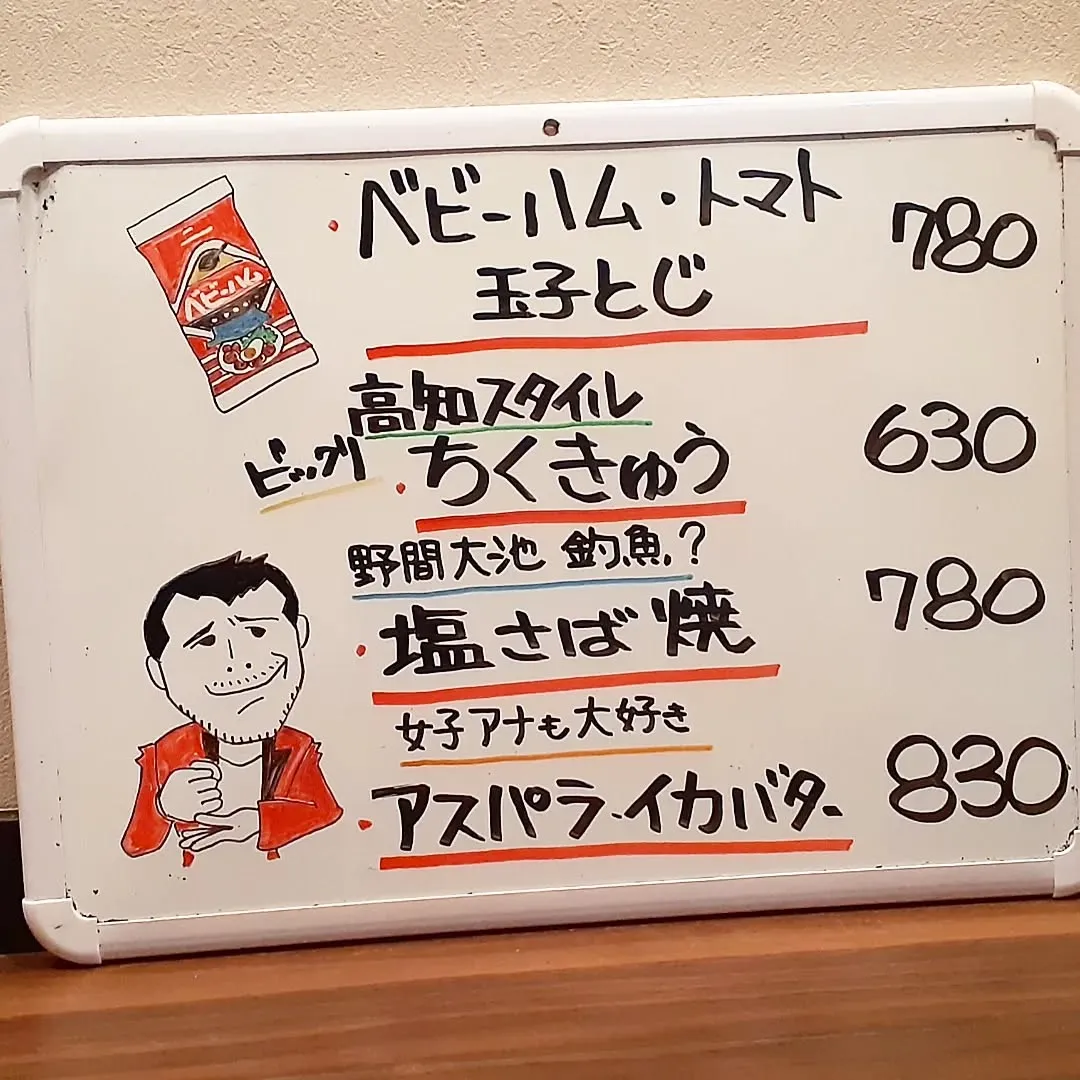 ベビーハム・トマト 780
玉子とじ
ベビーハム
高知スタイル
ビックリ
・ちくきゅう 630
野間大池 釣魚?
・塩さば焼 780
女子アナも大好き
・アスパラ・イカバター 830